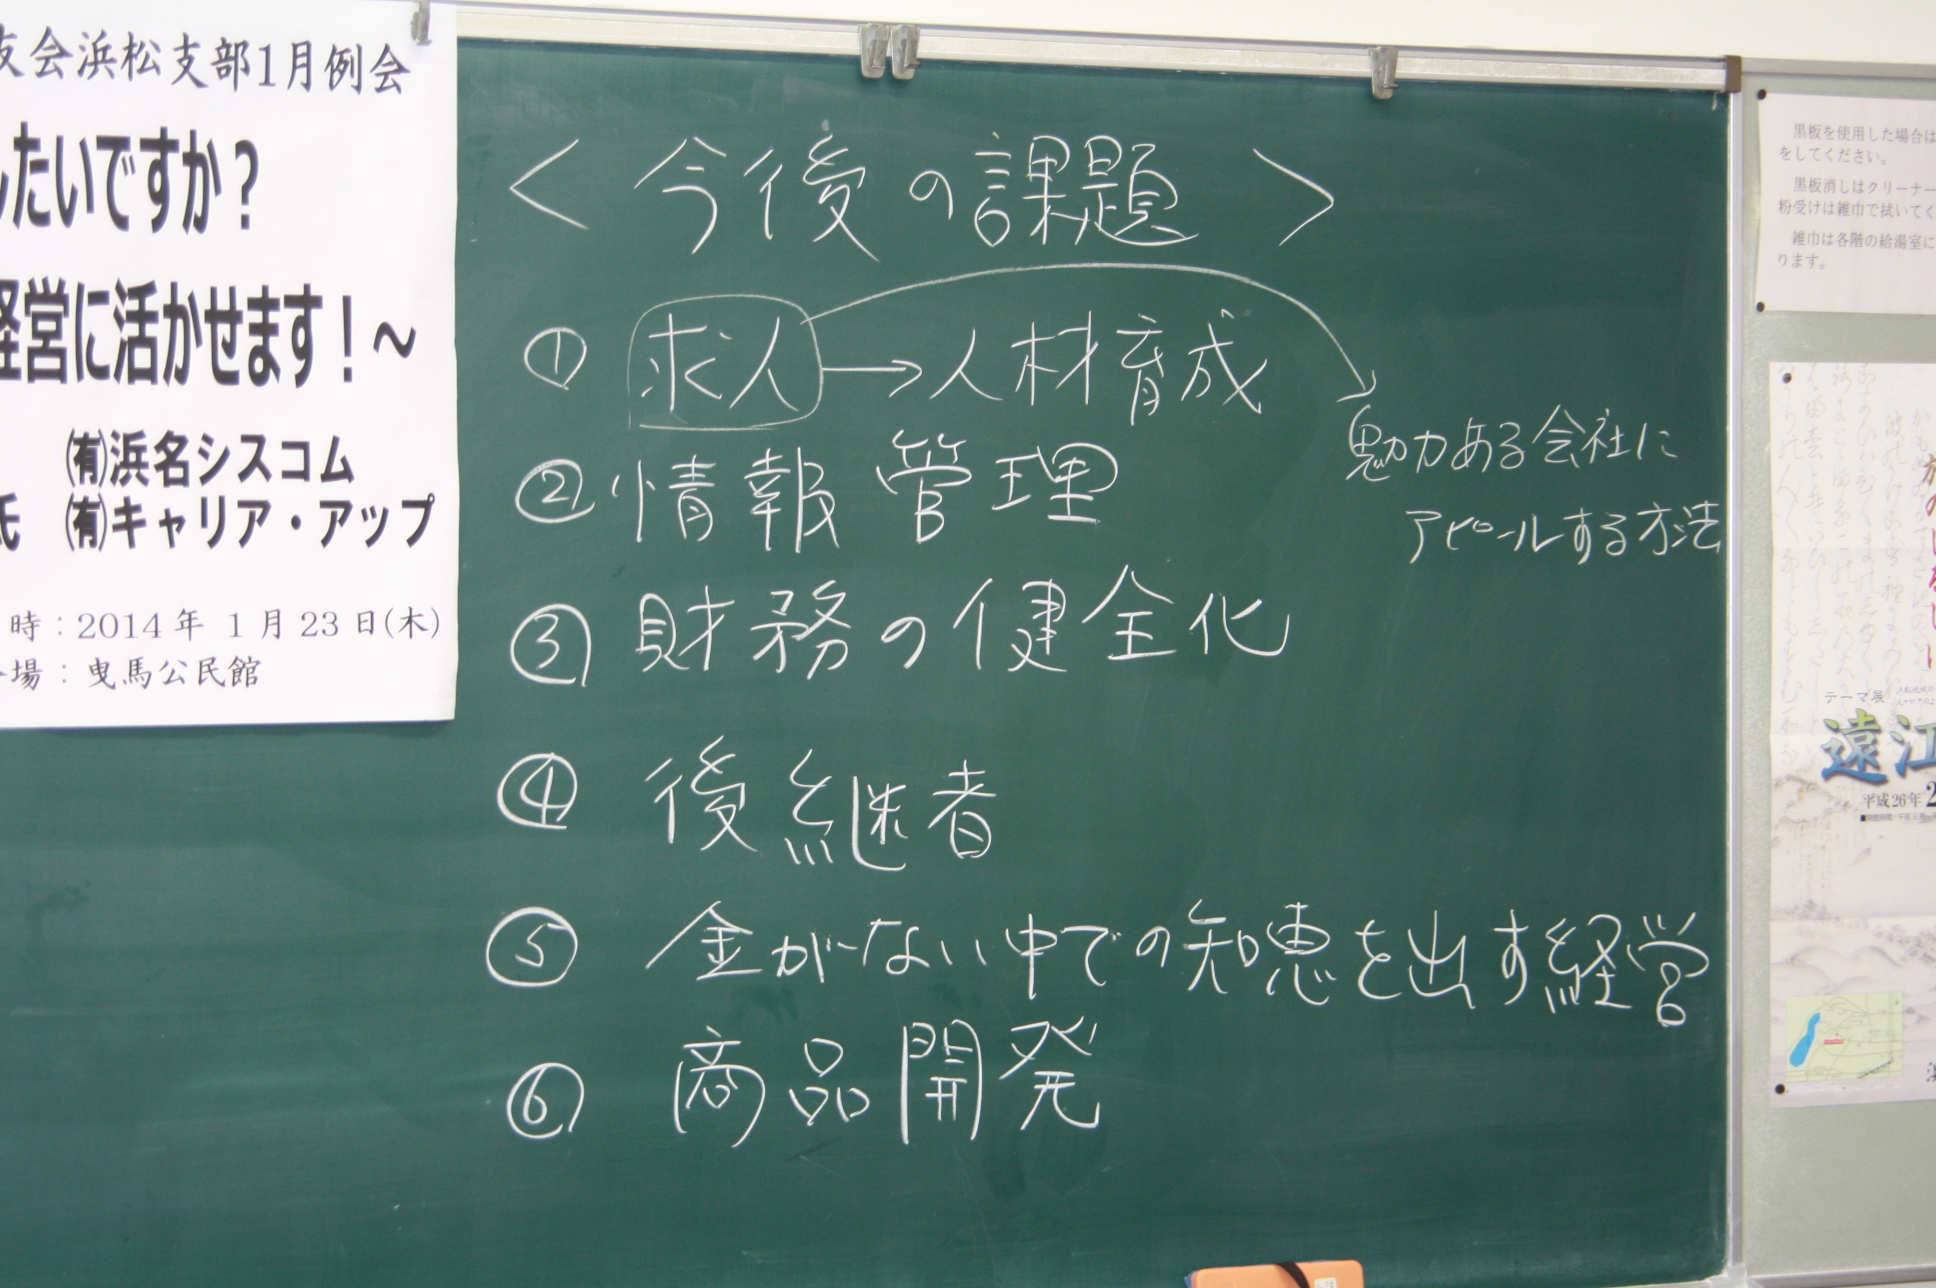 友会浜松支部1月例会
したいですか？
経営に活かせます！～
㈲浜名シスコム
氏 ㈲キャリア・アップ
時：2014年 1月23日(木)
場：曳馬公民館
＜今後の課題＞
① 求人→人材育成
魅力ある会社に
アピールする方法
② 情報管理
③ 財務の健全化
④ 後継者
⑤ 金がない中での知恵を出す経営
⑥ 商品開発
黒板を使用した場合は
をしてください。
黒板消しはクリーナー
粉受けは雑巾で拭いてく
雑巾は各階の給湯室に
ります。
テーマ展
遠江
平成26年2